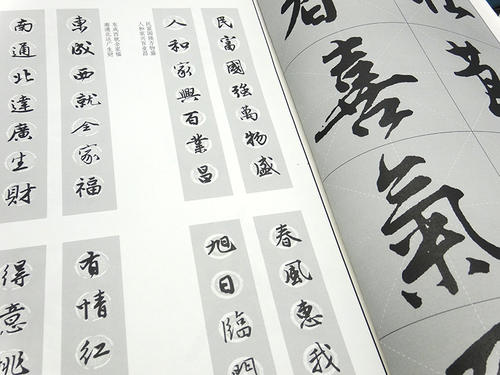 喜氣
民富國強萬物盛
人和家興百業昌
民富国强万物盛
人和家兴百业昌
東成西就全家福
南通北達廣生財
东成西就全家福
南通北达广生财
春風惠我
旭日臨
有情紅
得意桃